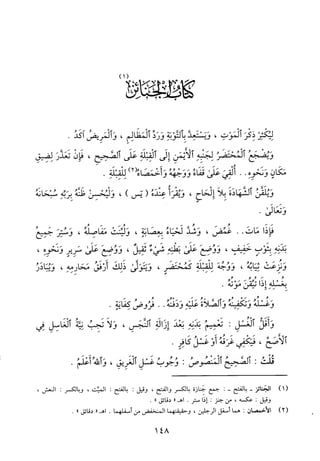 كتاب الجنائز (١)
لِيُكْثِرْ ذِكْرَ ٱلْمَوْتِ ، وَيَسْتَعِدَّ بِٱلتَّوْبَةِ وَرَدِّ ٱلْمَظَالِمِ ، وَٱلْمَرِيضُ آكَدُ .
وَيُضْجَعُ ٱلْمُحْتَضَرُ لِجَنْبِهِ ٱلأَيْمَنِ إِلَى ٱلْقِبْلَةِ عَلَى ٱلصَّحِيحِ ، فَإِنْ تَعَذَّرَ لِضِيقِ
مَكَانٍ وَنَحْوِهِ . . أُلْقِيَ عَلَىٰ قَفَاهُ وَوَجْهُهُ وَأَخْمَصَاهُ (٢) لِلْقِبْلَةِ .
وَيُلَقَّنُ ٱلشَّهَادَةَ بِلاَ إِلْحَاحٍ ، وَيُقْرَأُ عِنْدَهُ ( يسۤ ) ، وَلْيُحْسِنْ ظَنَّهُ بِرَبِّهِ سُبْحَانَهُ
وَتَعَالَىٰ .
فَإِذَا مَاتَ . . غُمِّضَ ، وَشُدَّ لَحْيَاهُ بِعِصَابَةٍ ، وَلُيِّنَتْ مَفَاصِلُهُ ، وَسُتِرَ جَمِيعُ
بَدَنِهِ بِثَوْبٍ خَفِيفٍ ، وَوُضِعَ عَلَىٰ بَطْنِهِ شَيْءٌ ثَقِيلٌ ، وَوُضِعَ عَلَىٰ سَرِيرٍ وَنَحْوِهِ ،
وَنُزِعَتْ ثِيَابُهُ ، وَوُجِّهَ لِلْقِبْلَةِ كَمُحْتَضَرٍ ، وَيَتَوَلَّىٰ ذَلِكَ أَرْفَقُ مَحَارِمِهِ ، وَيُبَادَرُ
بِغَسْلِهِ إِذَا تُيُقِّنَ مَوْتُهُ .
وَغَسْلُهُ وَتَكْفِينُهُ وَٱلصَّلاَةُ عَلَيْهِ وَدَفْنُهُ . . فُرُوضُ كِفَايَةٍ .
وَأَقَلُّ ٱلْغُسْلِ : تَعْمِيمُ بَدَنِهِ بَعْدَ إِزَالَةِ ٱلنَّجَسِ ، وَلاَ تَجِبُ نِيَّةُ ٱلْغَاسِلِ فِي
ٱلأَصَحِّ ، فَيَكْفِي غَرَقُهُ أَوْ غَسْلُ كَافِرٍ .
قُلْتُ : ٱلصَّحِيحُ ٱلْمَنْصُوصُ : وُجُوبُ غَسْلِ ٱلْغَرِيقِ ، وَٱللهُ أَعْلَمُ .
(١) الجنائز ـ بالفتح ـ : جمع جنازة بالكسر والفتح ، وقيل : بالفتح : الميّت ، وبالكسر : النعش ،
وقيل : عكسه ، من جنز : إذا ستر . اهـ « دقائق » .
(٢) الأخمصان : هما أسفل الرجلين ، وحقيقتهما المنخفض من أسفلهما . اهـ « دقائق » .
١٤٨